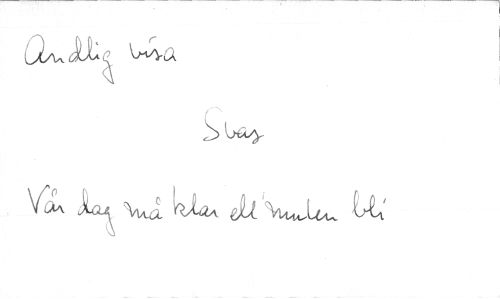 Andlig visa
Svag
Vår dag må klar ell' mulen bli